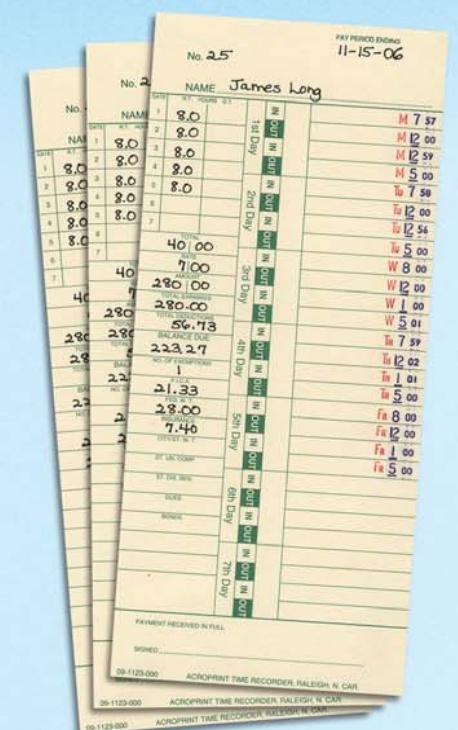 PAY PERIOD ENDING
No. 25 11-15-06
NAME James Long
DATE R.T. HOURS O.T.
1 8.0
2 8.0
3 8.0
4 8.0
5 8.0
6
7
TOTAL
40 00
RATE
7 00
AMOUNT
280 00
TOTAL EARNINGS
280.00
TOTAL DEDUCTIONS
56.73
BALANCE DUE
223.27
NO. OF EXEMPTIONS
1
F.I.C.A.
21.33
FED. W. T.
28.00
INSURANCE
7.40
CITY/ST. W. T.
ST. UN. COMP.
ST. DIS. BEN.
DUES
BONDS
1st Day IN OUT IN OUT
2nd Day IN OUT IN OUT
3rd Day IN OUT IN OUT
4th Day IN OUT IN OUT
5th Day IN OUT IN OUT
6th Day IN OUT IN OUT
7th Day IN OUT IN OUT
M 7 57
M 12 00
M 12 59
M 5 00
Tu 7 58
Tu 12 00
Tu 12 56
Tu 5 00
W 8 00
W 12 00
W 1 00
W 5 01
TH 7 59
TH 12 02
TH 1 01
TH 5 00
FR 8 00
FR 12 00
FR 1 00
FR 5 00
PAYMENT RECEIVED IN FULL
SIGNED
09-1123-000 ACROPRINT TIME RECORDER, RALEIGH, N. CAR.
No. 2
NAM
DATE R.T.
1 8.0
2 8.0
3 8.0
4 8.0
5 8.0
6
7
40
7
280
280
22
09-1123-000 ACROPRINT TIME RECORDER, RALEIGH, N. CAR.
No.
NA
DATE
1 8.0
2 8.0
3 8.0
4 8.0
5 8.0
6
7
40
280
28
22
09-1123-000 ACROPRINT TIME RECORDER, RALEIGH, N. CAR.